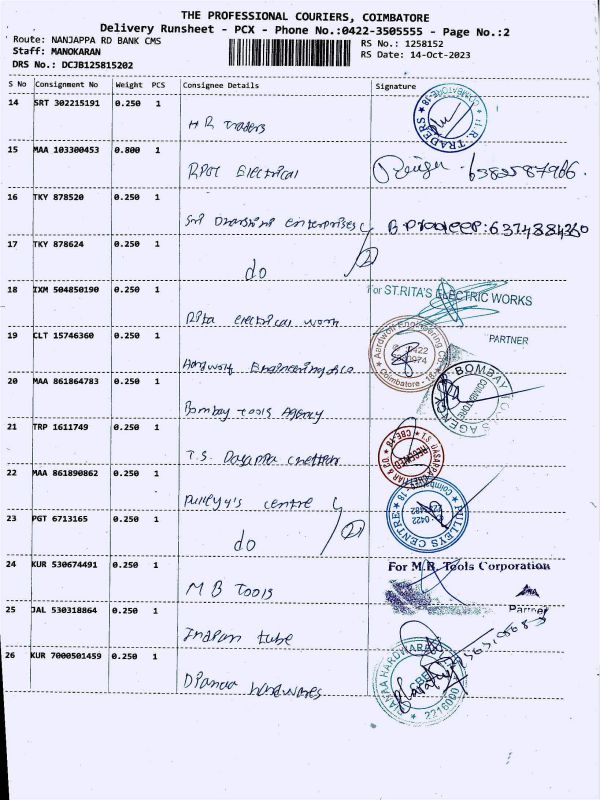 THE PROFESSIONAL COURIERS, COIMBATORE
Delivery Runsheet - PCX - Phone No.:0422-3505555 - Page No.:2
Route: NANJAPPA RD BANK CMS
RS No.: 1258152
Staff: MANOKARAN
RS Date: 14-Oct-2023
DRS No.: DCJB125815202
S No Consignment No Weight PCS Consignee Details Signature
14 SRT 302215191 0.250 1
H R Traders
H.R. TRADERS COIMBATORE-18
15 MAA 103300453 0.800 1
Electrical
16 TKY 878520 0.250 1
Sri Dharshini Enterprises B Pradeep:6374884360
17 TKY 878624 0.250 1
do 2
18 IXM 504850190 0.250 1
Rita electrical work
For ST.RITA'S ELECTRIC WORKS
PARTNER
19 CLT 15746360 0.250 1
Engineering & Co
Aardwon Engineering Co. Coimbatore - 18
20 MAA 861864783 0.250 1
Bombay Tools Agency
BOMBAY TOOLS AGENCY COIMBATORE
21 TRP 1611749 0.250 1
T.S. Chettiar
RECEIVED CBE-18
22 MAA 861890862 0.250 1
Pulleys centre
PULLEYS CENTRE Coimbatore - 18
23 PGT 6713165 0.250 1
do 2
24 KUR 530674491 0.250 1
M B Tools
For M.B. Tools Corporation
Partner
25 JAL 530318864 0.250 1
Indian tube
26 KUR 7000501459 0.250 1
Hardwares
HARDWARE CBE 2216000